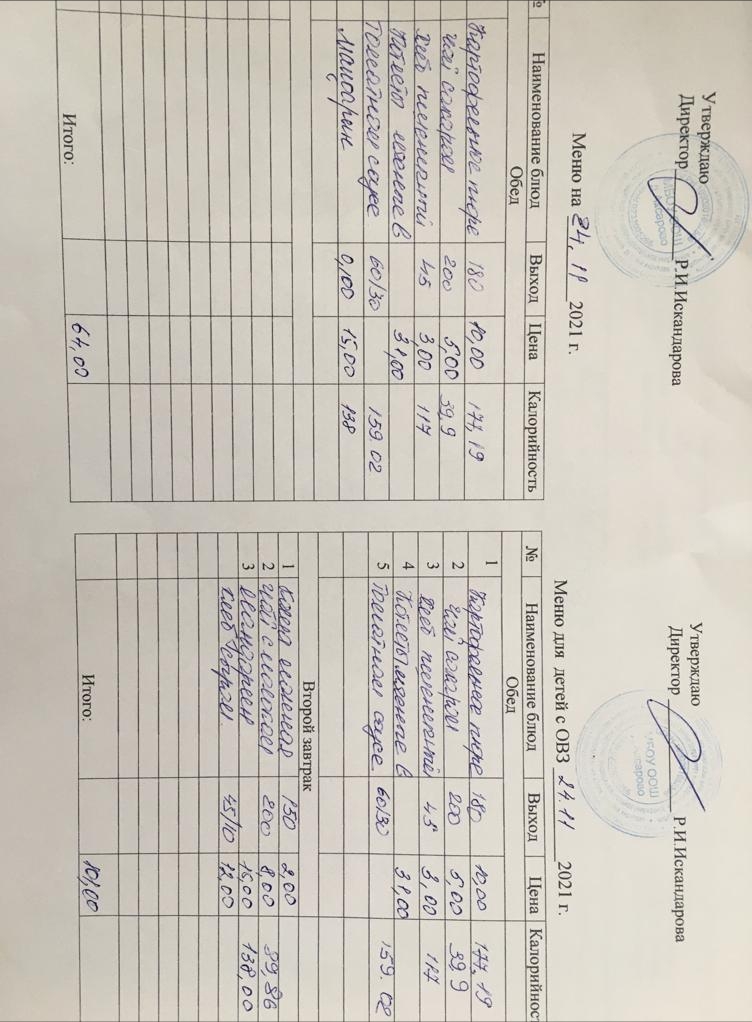 Утверждаю
Директор Р.И.Искандарова
Меню на 24, 11 2021 г.
№ Наименование блюд Выход Цена Калорийность
Обед
Картофельное пюре 180 10,00 177,19
Чай сахаром 200 5,00 39,9
Хлеб пшеничный 45 3,00 117
Котлеты мясные в 31,00
Томатном соусе 60/30 159.02
Мандарин 0,100 15,00 138
Итого: 64,00
Утверждаю
Директор Р.И.Искандарова
Меню для детей с ОВЗ 24.11 2021 г.
№ Наименование блюд Выход Цена Калорийнос
Обед
1 Картофельное пюре 180 10,00 177,19
2 Чай сахаром 200 5,00 39,9
3 Хлеб пшеничный 45 3,00 117
4 Котлеты мясные в 31,00
5 Томатном соусе. 60/30 159.02
Второй завтрак
1 150 2,00
2 Чай с молоком 200 8,00 89,86
3 Мандарин 15,00 138,00
хлеб сыром 45/10 12,00
Итого: 101,00
МБОУ ООШ